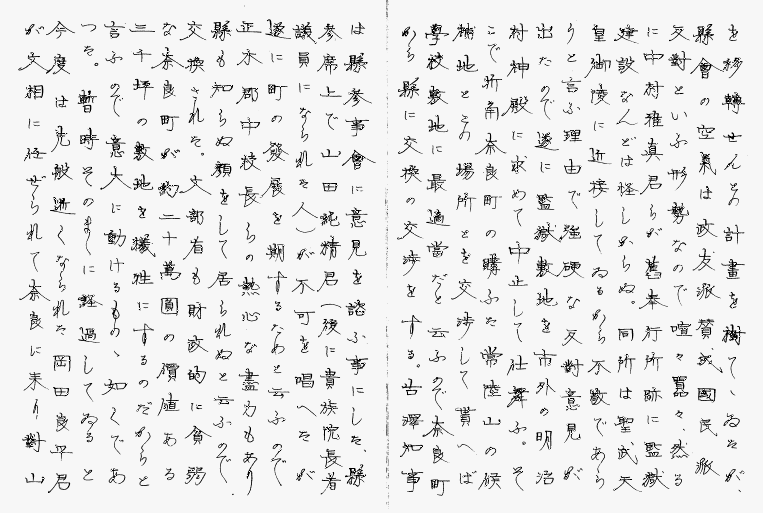 を移轉せんとの計畫を樹てゝゐたが、
縣會の空氣は政友派賛成國民派
反對といふ形勢なので喧々囂々、然る
に中村雅真君らが舊奉行所跡に監獄
建設なんどは怪しからぬ。同所は聖武天
皇御陵に近接してゐるから不敬であら
うと言ふ理由で強硬な反對意見が
出たので遂に監獄敷地を市外の明治
村神殿に求めて中止して仕舞ふ。そ
こで折角奈良町の購ふた常陸山の候
補地とこの場所とを交渉して貰へば
學校敷地に最適當だと云ふので奈良町
から縣に交換の交渉をする。古澤知事
は縣参事會に意見を諮ふ事にした、縣
参席上で山田純精君(後に貴族院長者
議員になられた人)が不可を唱へたが
遂に町の發展を期するなめと云ふので
正木郡中校長らの熱心な盡力もあり
縣も知らぬ顔をして居られぬと云ふので
交換された。文部省も財政的に貧弱
な奈良町が約二十萬圓の價値ある
三千坪の敷地を犠牲にするのだからと
言ふので意大に動けるものゝ如くであ
つた。暫時そのまゝに経過してゐると
今度は先般逝くなられた岡田良平君
が文相に任ぜられて奈良に来り對山